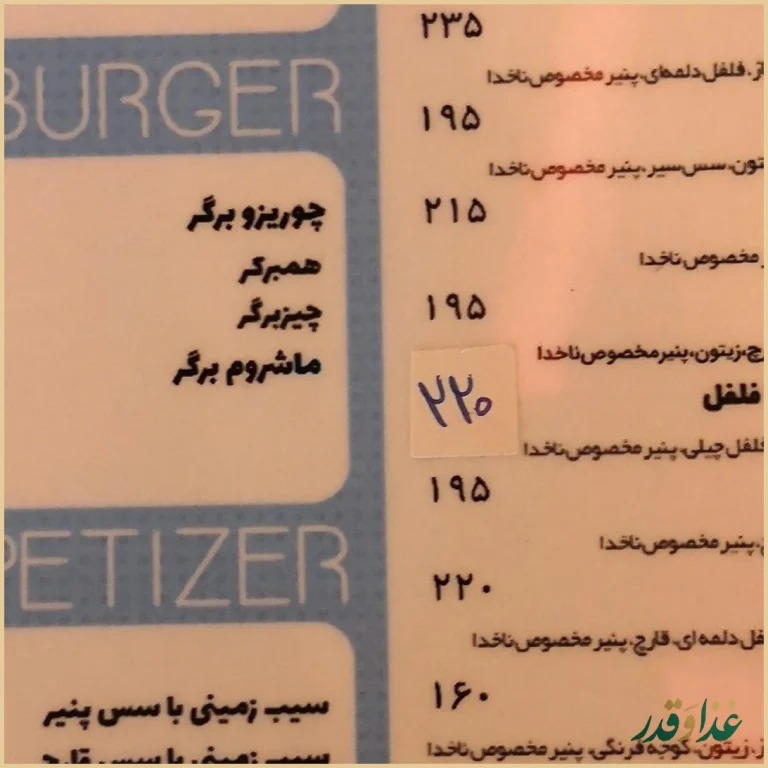 ۲۳۵
فلفل دلمه‌ای، پنیر مخصوص ناخدا
۱۹۵
سس سیر، پنیر مخصوص ناخدا
۲۱۵
مخصوص ناخدا
۱۹۵
زیتون، پنیر مخصوص ناخدا
۲۲۰
فلفل
فلفل چیلی، پنیر مخصوص ناخدا
۱۹۵
پنیر مخصوص ناخدا
۲۲۰
دلمه ای، قارچ، پنیر مخصوص ناخدا
۱۶۰
زیتون، گوجه فرنگی، پنیر مخصوص ناخدا
BURGER
چوریزو برگر
همبرگر
چیزبرگر
ماشروم برگر
PETIZER
سیب زمینی با سس پنیر
سیب زمینی با سس قارچ
غذا و قدر